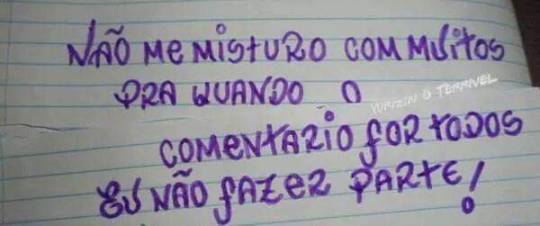 NÃO ME MISTURO COM MUITOS
PRA QUANDO O
COMENTARIO FOR TODOS
EU NÃO FAZER PARTE!